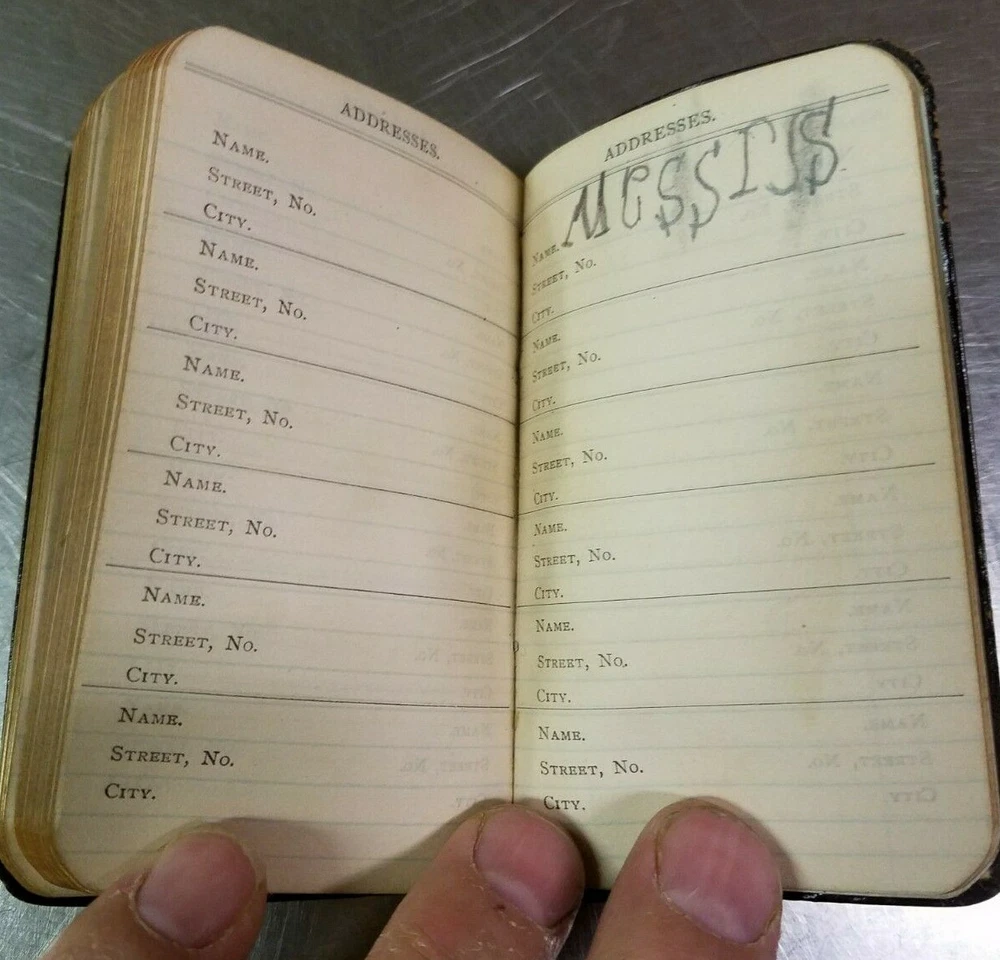 ADDRESSES.
NAME.
STREET, NO.
CITY.
NAME.
STREET, NO.
CITY.
NAME.
STREET, NO.
CITY.
NAME.
STREET, NO.
CITY.
NAME.
STREET, NO.
CITY.
NAME.
STREET, NO.
CITY.
ADDRESSES.
NAME.
STREET, NO.
CITY.
NAME.
STREET, NO.
CITY.
NAME.
STREET, NO.
CITY.
NAME.
STREET, NO.
CITY.
NAME.
STREET, NO.
CITY.
NAME.
STREET, NO.
CITY.